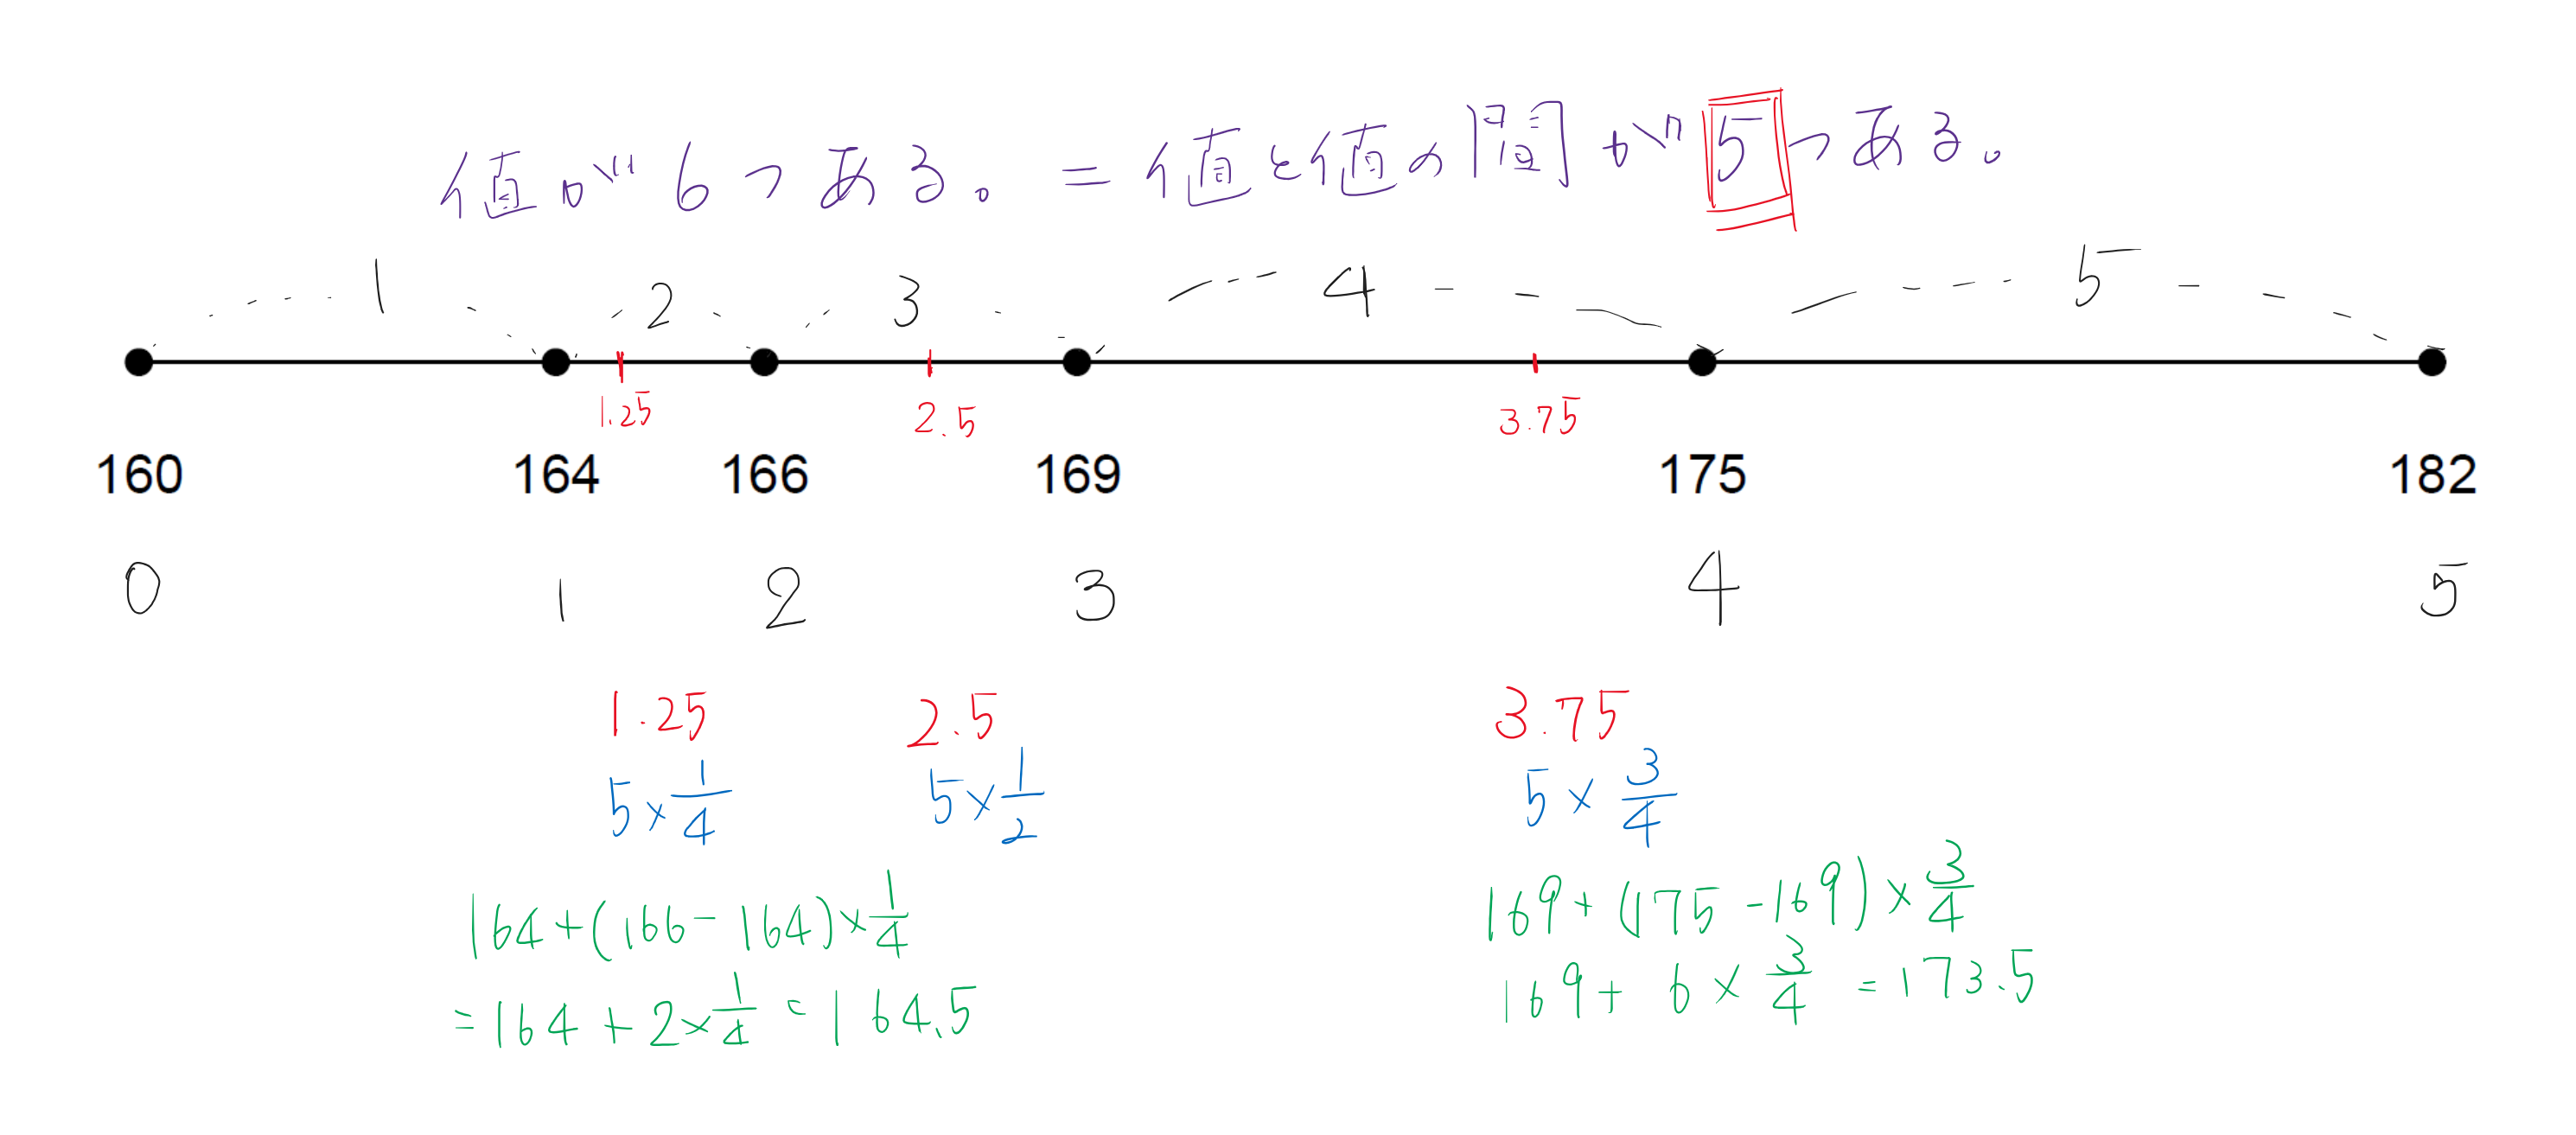 値が6つある。=値と値の間が5つある。
1 2 3 4 5
1.25 2.5 3.75
160 164 166 169 175 182
0 1 2 3 4 5
1.25 2.5 3.75
5×1/4 5×1/2 5×3/4
164+(166-164)×1/4
=164+2×1/4=164.5
169+(175-169)×3/4
169+6×3/4=173.5